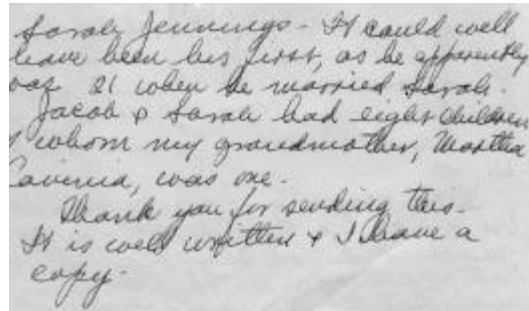 Sarah Jennings - It could well
have been his first, as he apparently
was 21 when he married Sarah.
Jacob & Sarah had eight children
of whom my grandmother, Martha
Lavinia, was one.
Thank you for sending this.
It is well written & I have a
copy.